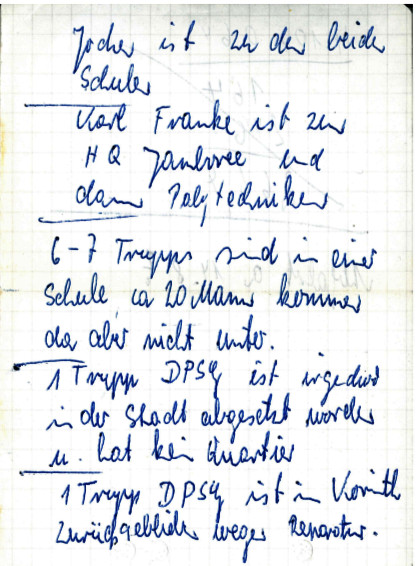 Jochen ist zu den beiden
Schulen
Karl Franke ist zum
HQ Jamboree und
dann Polytechniken
6-7 Trupps sind in einer
Schule, ca 20 Mann kommen
da aber nicht unter.
1 Trupp DPSG ist irgendwo
in der Stadt abgesetzt worden
u. hat kein Quartier
1 Trupp DPSG ist in Korinth
zurückgeblieben wegen Reparatur.